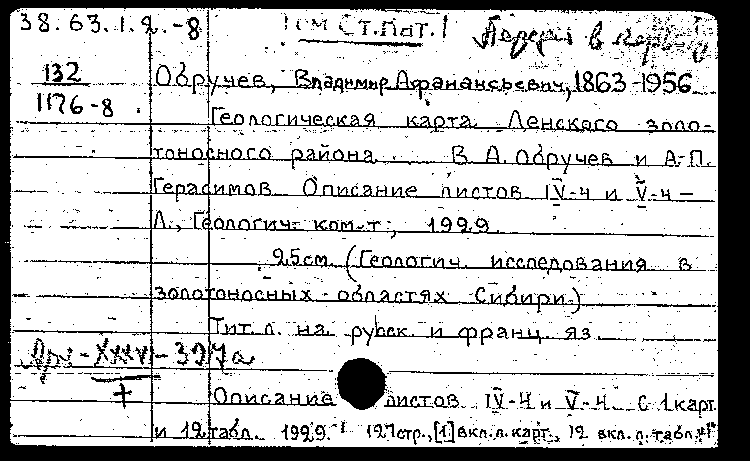 38.63.1.2.-8
Ст.Пат.!
132
1176-8
Обручев, Владимир Афанасьевич, 1863-1956
Геологическая карта Ленского золо-
тоносного района. В.А. Обручев и А.П.
Герасимов Описание листов IV-4 и V-4 -
Л., Геологич. ком-т, 1929.
25см. (Геологич. исследования в
золотоносных областях Сибири.)
Тит. л. на русск. и франц. яз.
397а
Описание листов IV-4 и V-4. С 1 карт.
и 12 табл. 1929. 127 стр., [1] вкл. л. карт., 12 вкл. л. табл.